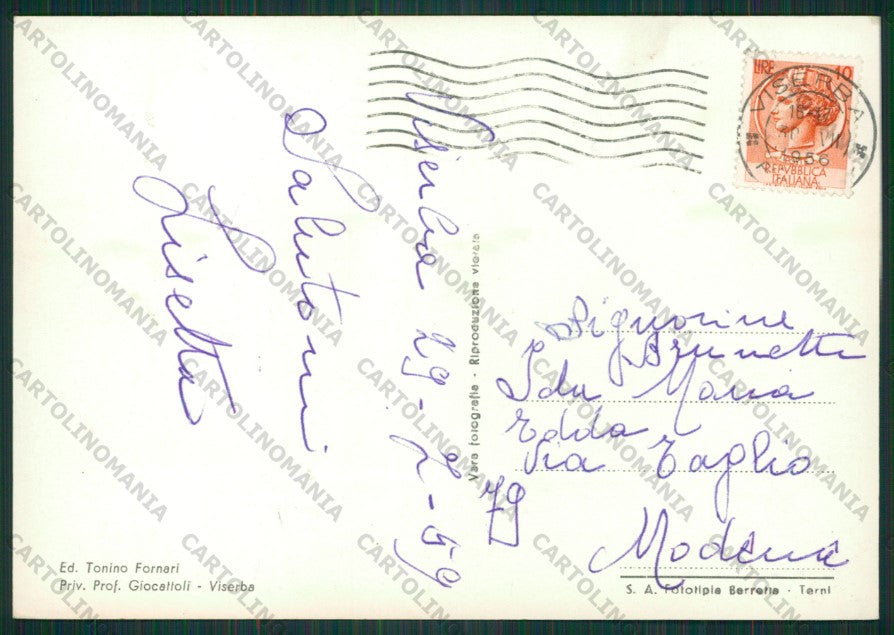 Viserba 29-7-59
Salutoni
Lisetta
LIRE 10
REPVBBLICA
ITALIANA
VISERBA
1956
Vera fotografia - Riproduzione vietata
Signorine
Brunetti
Ida Maria
Edda
Via Taglio
79
Modena
Ed. Tonino Fornari
Priv. Prof. Giocattoli - Viserba
S. A. Fototipia Berretta - Terni
CARTOLINOMANIA